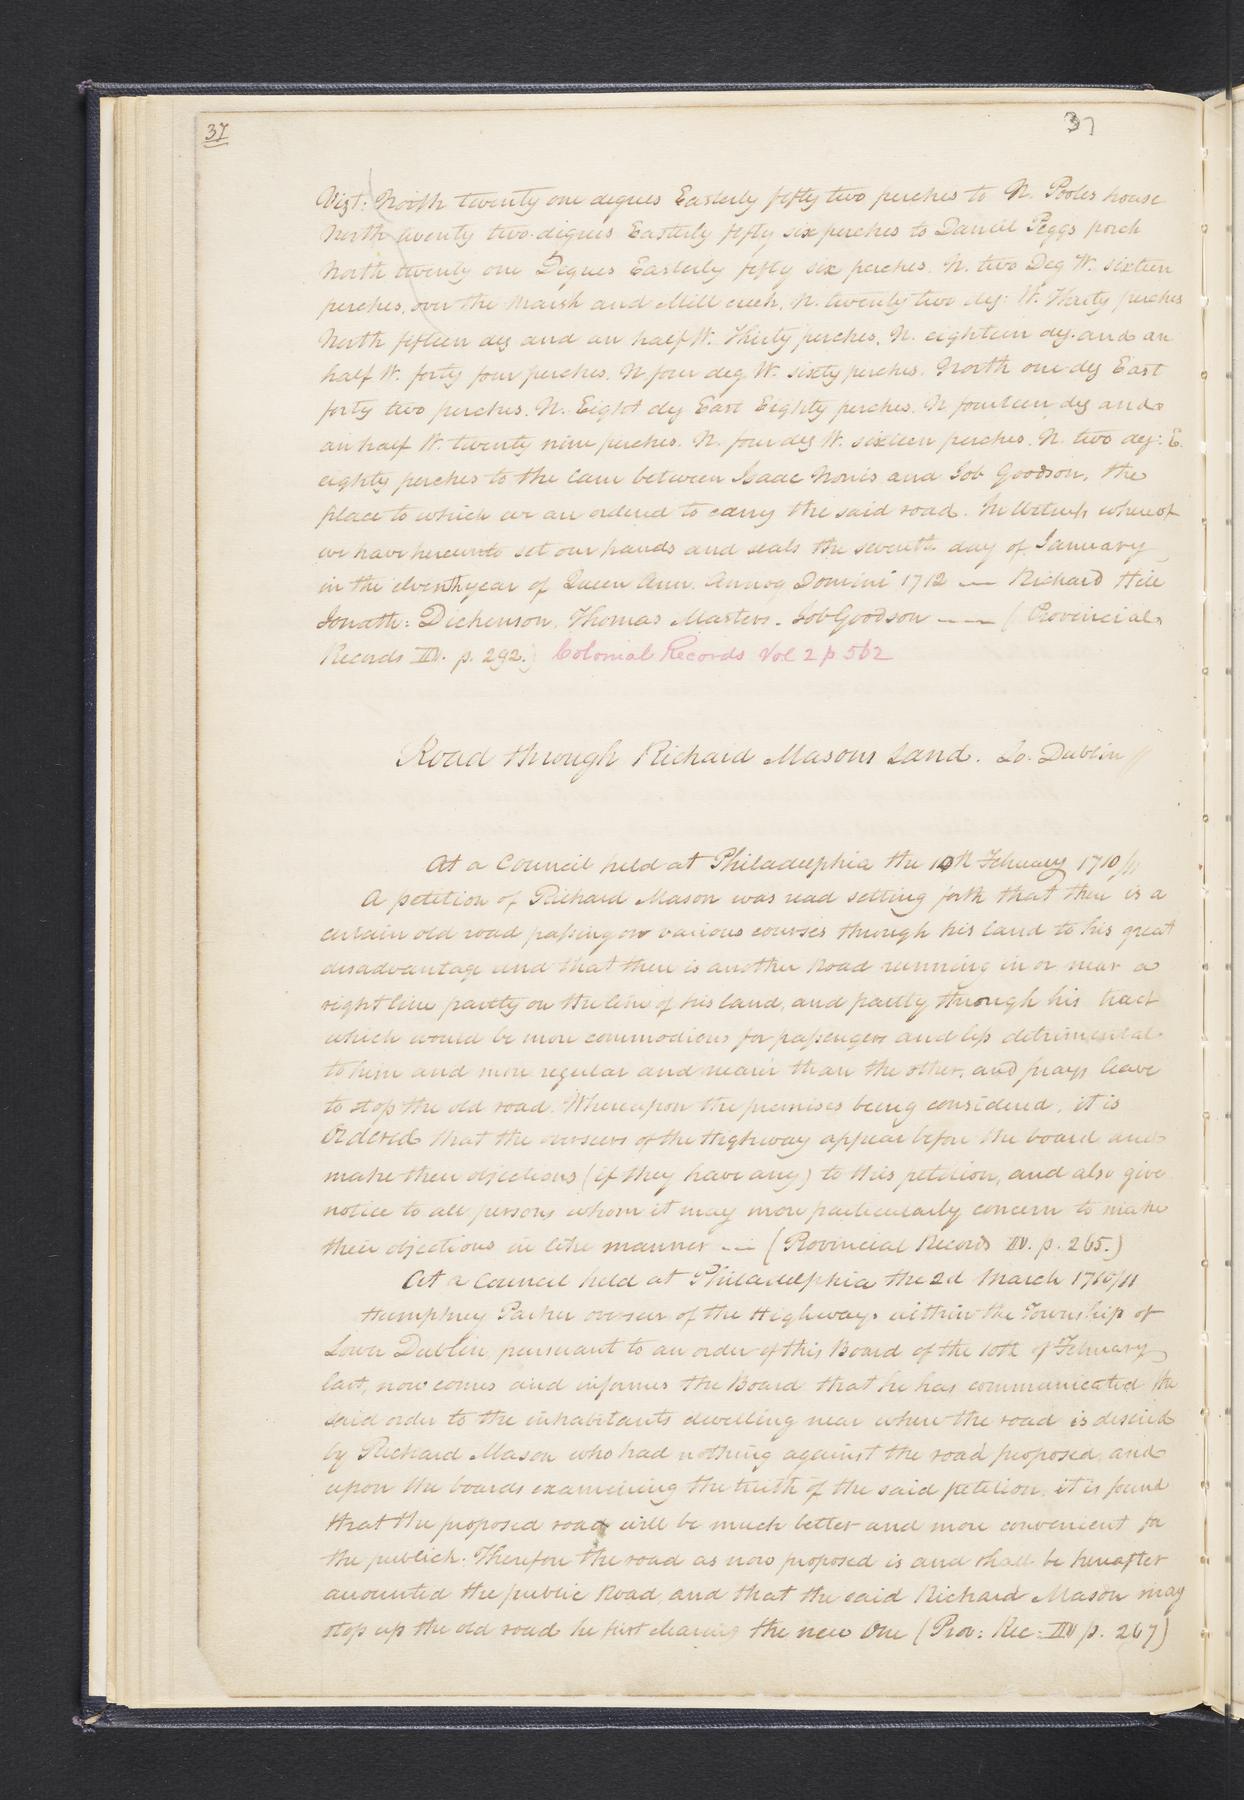 37
37
Vizt: North twenty one degrees Easterly fifty two perches to N. Pooles house
North twenty two degrees Easterly fifty six perches to Daniel Peggs porch
North twenty one Degrees Easterly fifty six perches. N. two Deg W. sixteen
perches, over the Marsh and Mill creek, N. twenty two deg: W. Thirty perches
North fifteen deg and an half W. Thirty perches, N. eighteen deg. and an
half W. forty four perches. N four deg W. sixty perches. North one deg East
forty two perches. N. Eight deg East Eighty perches. N fourteen deg and
an half W. twenty nine perches. N. four deg W. sixteen perches. N. two deg: E.
eighty perches to the lane between Isaac Norris and Job Goodson, the
place to which we are ordered to carry the said road. In Witness whereof
we have hereunto set our hands and seals the seventh day of January
in the eleventh year of Queen Ann. Annoq Domini 1712 — Richard Hill
Jonath: Dickenson, Thomas Masters. Job Goodson — — (Provincial
Records III. p. 292.) Colonial Records Vol 2 p 562
Road through Richard Masons Land. Lo. Dublin //
At a Council held at Philadelphia the 10th February 1710/11
A petition of Richard Mason was read setting forth that there is a
certain old road passing on various courses through his land to his great
disadvantage and that there is another Road running in or near a
right line partly on the line of his land, and partly through his tract
which would be more commodious for passengers and less detrimental
to him and more regular and nearer than the other, and prays leave
to stop the old road. Whereupon the premises being considered, it is
Ordered that the overseers of the Highway appear before the board and
make their objections (if they have any) to this petition, and also give
notice to all persons whom it may more particularly concern to make
their objections in like manner — (Provincial Records III. p. 265.)
At a Council held at Philadelphia the 2d March 1710/11
Humphrey Parker overseer of the Highways within the Township of
Lower Dublin pursuant to an order of this Board of the 10th of February
last, now comes and informes the Board that he has communicated the
said order to the inhabitants dwelling near where the road is desired
by Richard Mason who had nothing against the road proposed, and
upon the boards examining the truth of the said petition, it is found
that the proposed road will be much better and more convenient for
the publick. Therefore the road as now proposed is and shall be hereafter
accounted the public Road, and that the said Richard Mason may
stop up the old road he first clearing the new One (Prov: Rec: III p. 267)